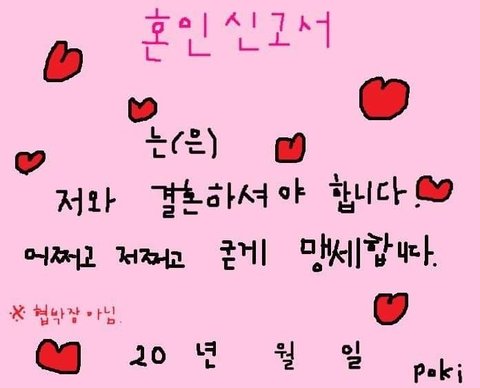 혼인신고서
는(은)
저와 결혼하셔야 합니다.
어쩌고 저쩌고 굳게 맹세합니다.
※협박장아님.
20 년 월 일
poki